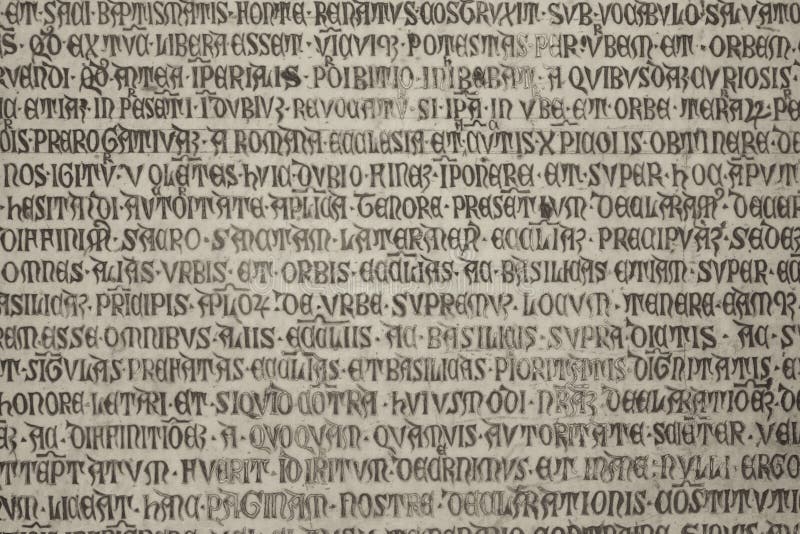 ET · SACI · BAPTISMATIS · HONTE · RENATVS · COSTRVXIT · SVB · VOCABVLO · SALVATO
S · QD · EX TVC · LIBERA ESSET · VICVI · POTESTAS PER VBEM · ET · ORBEM
RVENDI · QD ANTEA · IPERIALIS · POIBITIO · INIBEBAT · A QVIBVSDAZ CVRIOSIS
C · ETIAZ · IN PESETI · I DVBIVZ · REVOCATV · SI · IPA · IN VBE · ET · ORBE · TERAR · PE
OIS · PREROGATIVAZ · A ROMANA · ECCLESIA · ET · CVTIS · X PICOLIS · OBTINERE · DE
NOS · IGITVR · VOLETES · HVIC · DVBIO · FINEZ · IPONERE · ET · SVPER · HOC · APVT
HESITADI · AVTORITATE · APLICA · TENORE · PRESETIVM · DECLARAM · DECER
DIFFINIM · SACRO · SANCTAM · LATERANEN · ECCLIAZ · PRECIPVAZ · SEDEZ
OMNES · ALIAS · VRBIS · ET · ORBIS · ECCLIAS · AC · BASILICAS · ETIAM · SVPER · EC
ASILICAZ · PRICIPIS · APLOR · DE · VRBE · SVPREMVZ · LOCVM · TENERE · EAMQZ
REM · ESSE · OMNIBVS · ALIIS · ECCLIIS · AC · BASILICIS · SVPRA · DICTIS · AC · S
T · SIGVLAS · PREFATAS · ECCLIAS · ET BASILICAS · PIORITATIS · DIGNITATIS · E
HONORE · LETARI · ET · SIQVID · COTRA · HVIVSMODI · NRAZ · DECLARATIOEZ · DE
EZ · AC · DIFFINITIOEZ · A · QVOQVAM · QVAMVIS · AVTORITATE · SCIETER · VEL
TTEPTATVM · FVERIT · ID IRITVM · DECERNIMVS · ET · INANE · NVLLI · ERGO
VM · LICEAT · HANC · PAGINAM · NOSTRE · DECLARATIONIS · COSTITVTI